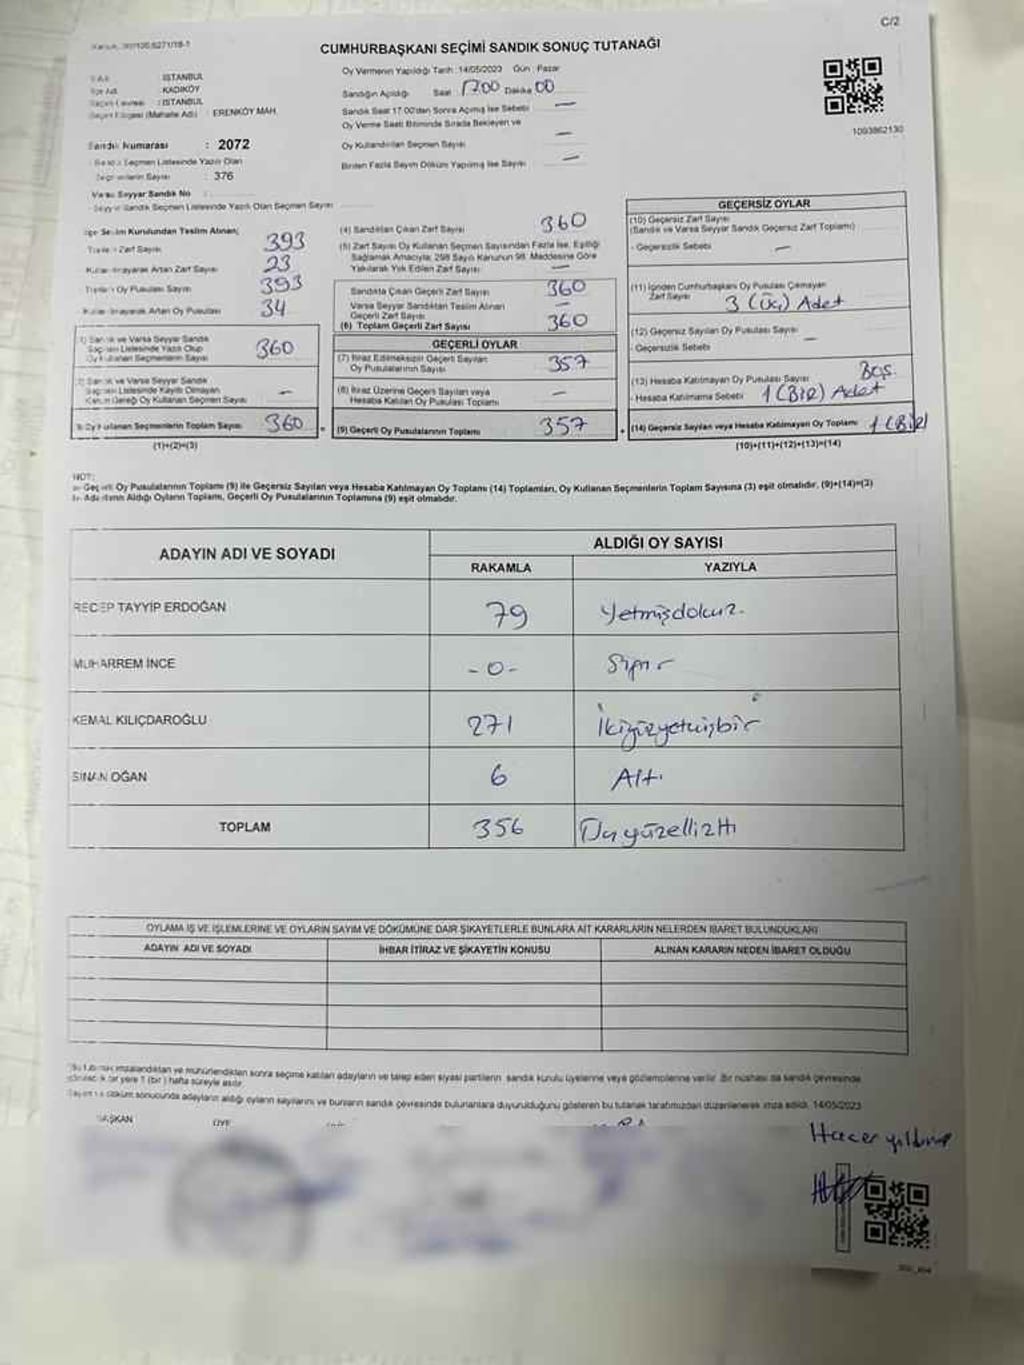 C/2
CUMHURBAŞKANI SEÇİMİ SANDIK SONUÇ TUTANAĞI
Oy Vermenin Yapıldığı Tarih : 14/05/2023 Gün : Pazar
Sandığın Açıldığı Saat 1700 Dakika 00
Sandık Saat 17:00'dan Sonra Açılmış İse Sebebi —
Oy Verme Saati Bitiminde Sırada Bekleyen ve
Oy Kullandırılan Seçmen Sayısı —
Birden Fazla Sayım Döküm Yapılmış İse Sayısı —
1093862130
: İSTANBUL
: KADIKÖY
: İSTANBUL
(Mahalle Adı) : ERENKÖY MAH.
Sandık Numarası : 2072
Seçmen Listesinde Yazılı Olan
Seçmenlerin Sayısı : 376
Varsa Seyyar Sandık No
Seyyar Sandık Seçmen Listesinde Yazılı Olan Seçmen Sayısı
İlçe Seçim Kurulundan Teslim Alınan;
Toplam Zarf Sayısı 393
Kullanılmayarak Artan Zarf Sayısı 23
Toplam Oy Pusulası Sayısı 393
Kullanılmayarak Artan Oy Pusulası 34
1) Sandık ve Varsa Seyyar Sandık
Seçmen Listesinde Yazılı Olup
Oy Kullanan Seçmenlerin Sayısı 360
2) Sandık ve Varsa Seyyar Sandık
Seçmen Listesinde Kayıtlı Olmayan
Kanun Gereği Oy Kullanan Seçmen Sayısı —
3) Oy Kullanan Seçmenlerin Toplam Sayısı 360
(1)+(2)=(3)
(4) Sandıktan Çıkan Zarf Sayısı 360
(5) Zarf Sayısı Oy Kullanan Seçmen Sayısından Fazla İse, Eşitliği
Sağlamak Amacıyla; 298 Sayılı Kanunun 98. Maddesine Göre
Yakılarak Yok Edilen Zarf Sayısı —
Sandıkta Çıkan Geçerli Zarf Sayısı 360
Varsa Seyyar Sandıktan Teslim Alınan
Geçerli Zarf Sayısı —
(6) Toplam Geçerli Zarf Sayısı 360
GEÇERLİ OYLAR
(7) İtiraz Edilmeksizin Geçerli Sayılan
Oy Pusulalarının Sayısı 357
(8) İtiraz Üzerine Geçerli Sayılan veya
Hesaba Katılan Oy Pusulası Toplamı —
(9) Geçerli Oy Pusulalarının Toplamı 357
GEÇERSİZ OYLAR
(10) Geçersiz Zarf Sayısı
(Sandık ve Varsa Seyyar Sandık Geçersiz Zarf Toplamı)
- Geçersizlik Sebebi —
(11) İçinden Cumhurbaşkanı Oy Pusulası Çıkmayan
Zarf Sayısı 3 (Üç) Adet
(12) Geçersiz Sayılan Oy Pusulası Sayısı —
- Geçersizlik Sebebi
(13) Hesaba Katılmayan Oy Pusulası Sayısı Boş.
- Hesaba Katılmama Sebebi 1 (BİR) Adet
(14) Geçersiz Sayılan veya Hesaba Katılmayan Oy Toplamı 1 (BİR)
(10)+(11)+(12)+(13)=(14)
NOT:
a- Geçerli Oy Pusulalarının Toplamı (9) ile Geçersiz Sayılan veya Hesaba Katılmayan Oy Toplamı (14) Toplamları, Oy Kullanan Seçmenlerin Toplam Sayısına (3) eşit olmalıdır. (9)+(14)=(3)
b- Adayların Aldığı Oyların Toplamı, Geçerli Oy Pusulalarının Toplamına (9) eşit olmalıdır.
ADAYIN ADI VE SOYADI
ALDIĞI OY SAYISI
RAKAMLA YAZIYLA
RECEP TAYYİP ERDOĞAN 79 Yetmişdokuz.
MUHARREM İNCE -0- Sıfır
KEMAL KILIÇDAROĞLU 271 İkiyüzyetmişbir
SİNAN OĞAN 6 Altı
TOPLAM 356 Üçyüzellialtı
OYLAMA İŞ VE İŞLEMLERİNE VE OYLARIN SAYIM VE DÖKÜMÜNE DAİR ŞİKAYETLERLE BUNLARA AİT KARARLARIN NELERDEN İBARET BULUNDUKLARI
ADAYIN ADI VE SOYADI İHBAR İTİRAZ VE ŞİKAYETİN KONUSU ALINAN KARARIN NEDEN İBARET OLDUĞU
imzalandıktan ve mühürlendikten sonra seçime katılan adayların ve talep eden siyasi partilerin sandık kurulu üyelerine veya gözlemcilerine verilir. Bir nüshası da sandık çevresinde
bir yere 1 (bir) hafta süreyle asılır.
Sayım ve döküm sonucunda adayların aldığı oyların sayılarını ve bunların sandık çevresinde bulunanlara duyurulduğunu gösteren bu tutanak tarafımızdan düzenlenerek imza edildi. 14/05/2023
BAŞKAN ÜYE
Hacer Yıldırım